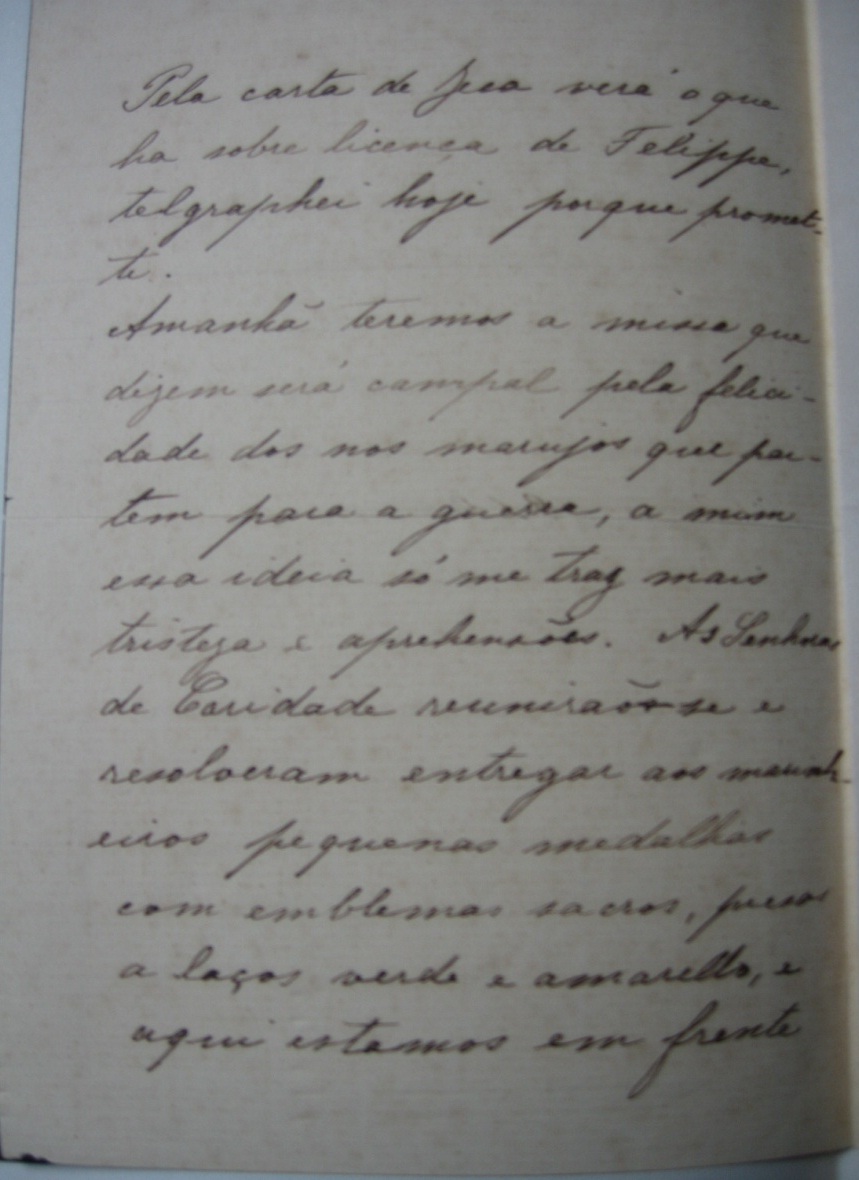 Pela carta de Zeca verá o que
ha sobre licença de Felippe,
telgraphei hoje porque promet-
te.
Amanhã teremos a missa que
dizem será campal pela felici-
dade dos nos marujos que par-
tem para a guerra, a mim
essa ideia só me traz mais
tristeza e aprehensões. As Senhoras
de Caridade reunirão-se e
resolveram entregar aos marinh-
eiros pequenas medalhas
com emblemas sacros, presos
a laços verde e amarello, e
aqui estamos em frente